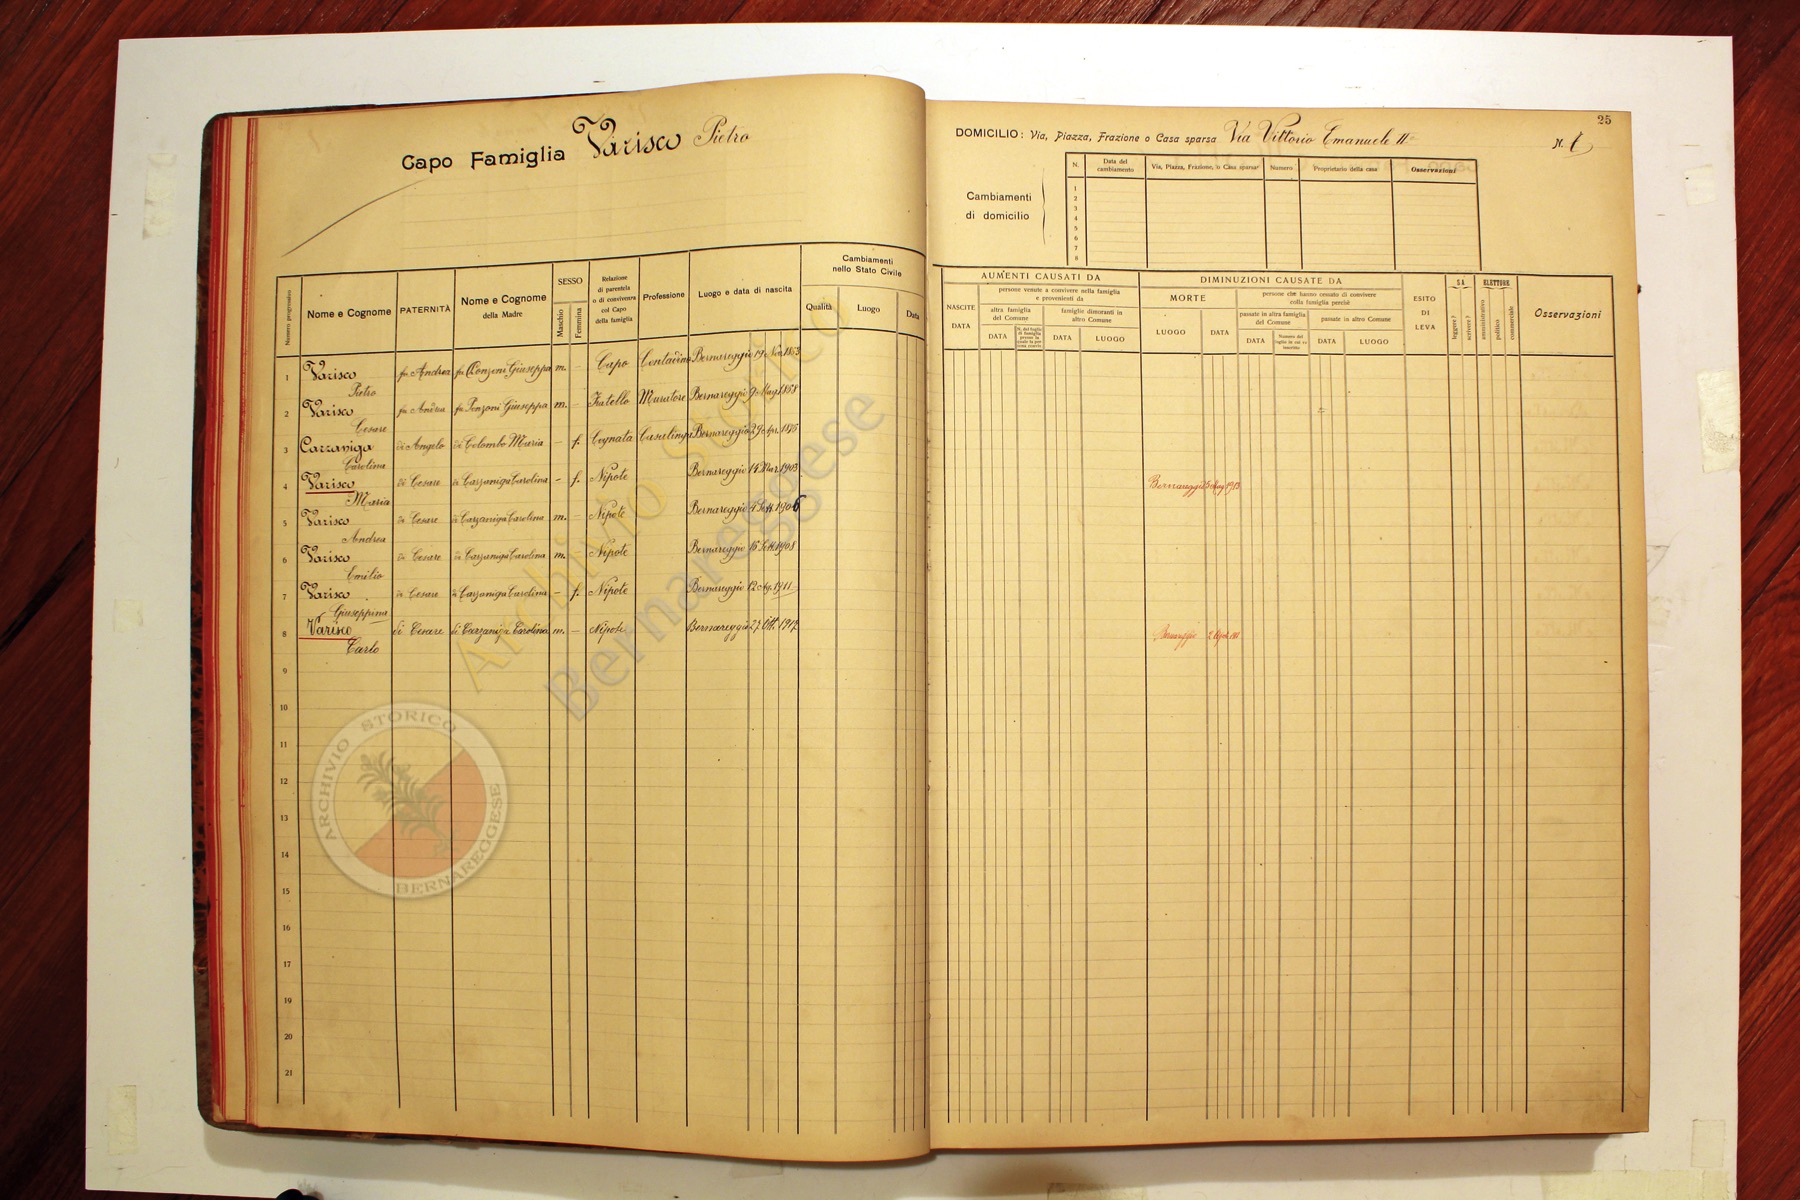 Capo Famiglia Varisco Pietro
Numero progressivo
Nome e Cognome
PATERNITÀ
Nome e Cognome
della Madre
SESSO
Maschio
Femmina
Relazione
di parentela
o di convivenza
col Capo
della famiglia
Professione
Luogo e data di nascita
Cambiamenti
nello Stato Civile
Qualità
Luogo
Data
1 Varisco fu Andrea fu Ponzoni Giuseppa m. – Capo Contadino Bernareggio 19 Nov. 1853
Pietro
2 Varisco fu Andrea fu Ponzoni Giuseppa m. – Fratello Muratore Bernareggio 9 Mag. 1858
Cesare
3 Carzaniga di Angelo di Colombo Maria – f. Cognata Casalinga Bernareggio 29 Apr. 1875
Carolina
4 Varisco di Cesare di Carzaniga Carolina – f. Nipote Bernareggio 14 Mar. 1903
Maria
5 Varisco di Cesare di Carzaniga Carolina m. – Nipote Bernareggio 4 Sett. 1906
Andrea
6 Varisco di Cesare di Carzaniga Carolina m. – Nipote Bernareggio 15 Sett. 1908
Emilio
7 Varisco di Cesare di Carzaniga Carolina – f. Nipote Bernareggio 12 Ag. 1911
Giuseppina
8 Varisco di Cesare di Carzaniga Carolina m. – Nipote Bernareggio 27 Ott. 1912
Carlo
9
10
11
12
13
14
15
16
17
18
19
20
21
25
DOMICILIO: Via, Piazza, Frazione o Casa sparsa Via Vittorio Emanuele II
N. 1
Cambiamenti
di domicilio
N.
Data del
cambiamento
Via, Piazza, Frazione, o Casa sparsa
Numero
Proprietario della casa
Osservazioni
1
2
3
4
5
6
7
8
AUMENTI CAUSATI DA
NASCITE
DATA
persone venute a convivere nella famiglia
e provenienti da
altra famiglia
del Comune
famiglie dimoranti in
altro Comune
DATA
DATA
LUOGO
DIMINUZIONI CAUSATE DA
MORTE
LUOGO
DATA
persone che hanno cessato di convivere
colla famiglia perchè
passate in altra famiglia
del Comune
passate in altro Comune
DATA
Numero del
foglio in cui va
inscritto
DATA
LUOGO
ESITO
DI
LEVA
SA
leggere?
scrivere?
ELETTORE
amministrativo
politico
commerciale
Osservazioni
Bernareggio 1913
Bernareggio
Archivio Storico
Bernareggese
ARCHIVIO STORICO
BERNAREGGESE